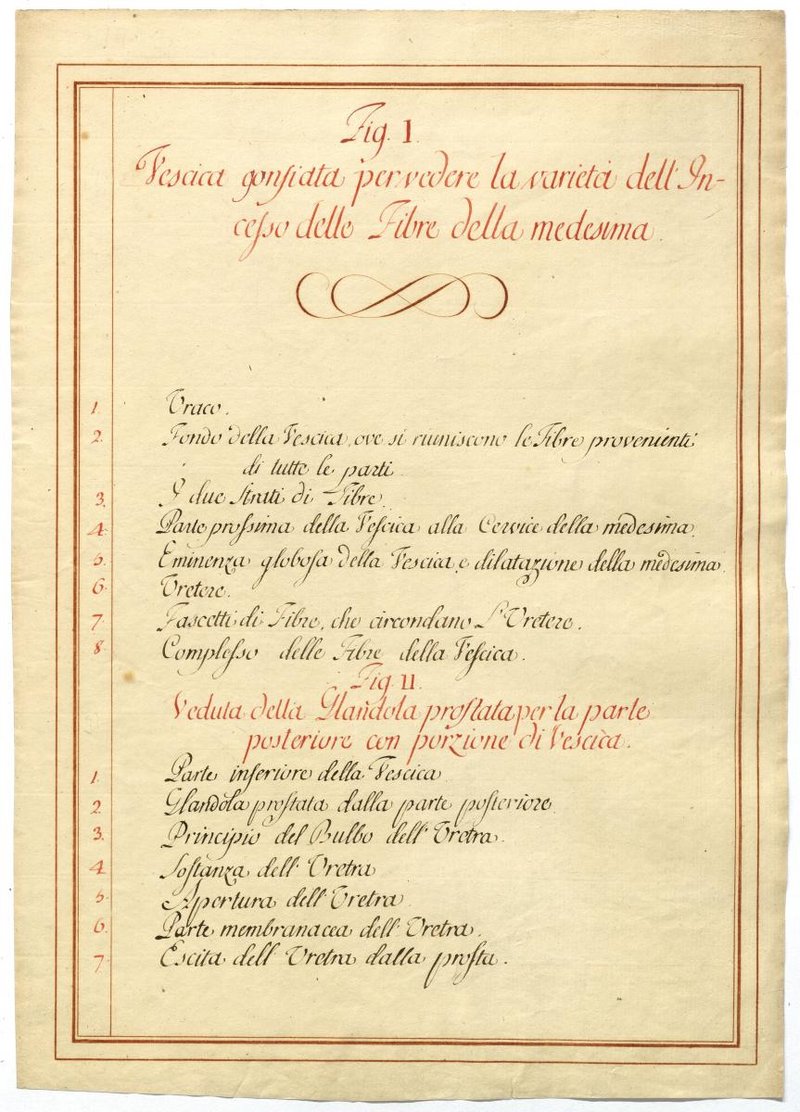 Fig. I.
Vescica gonfiata per vedere la varietà dell' In-
cesso delle Fibre della medesima.
1. Uraco.
2. Fondo della Vescica, ove si riuniscono le Fibre provenienti
di tutte le parti.
3. I due Strati di Fibre.
4. Parte prossima della Vescica alla Cervice della medesima.
5. Eminenza globosa della Vescica, e dilatazione della medesima.
6. Uretere.
7. Fascetti di Fibre, che circondano L'Uretere.
8 Complesso delle Fibre della Vescica.
Fig. II.
Veduta della Glandola prostata per la parte
posteriore con porzione di Vescica.
1. Parte inferiore della Vescica
2. Glandola prostata dalla parte posteriore
3. Principio del Bulbo dell' Uretra.
4. Sostanza dell' Uretra
5. Apertura dell' Uretra
6. Parte membranacea dell' Uretra.
7. Escita dell' Uretra dalla prosta.